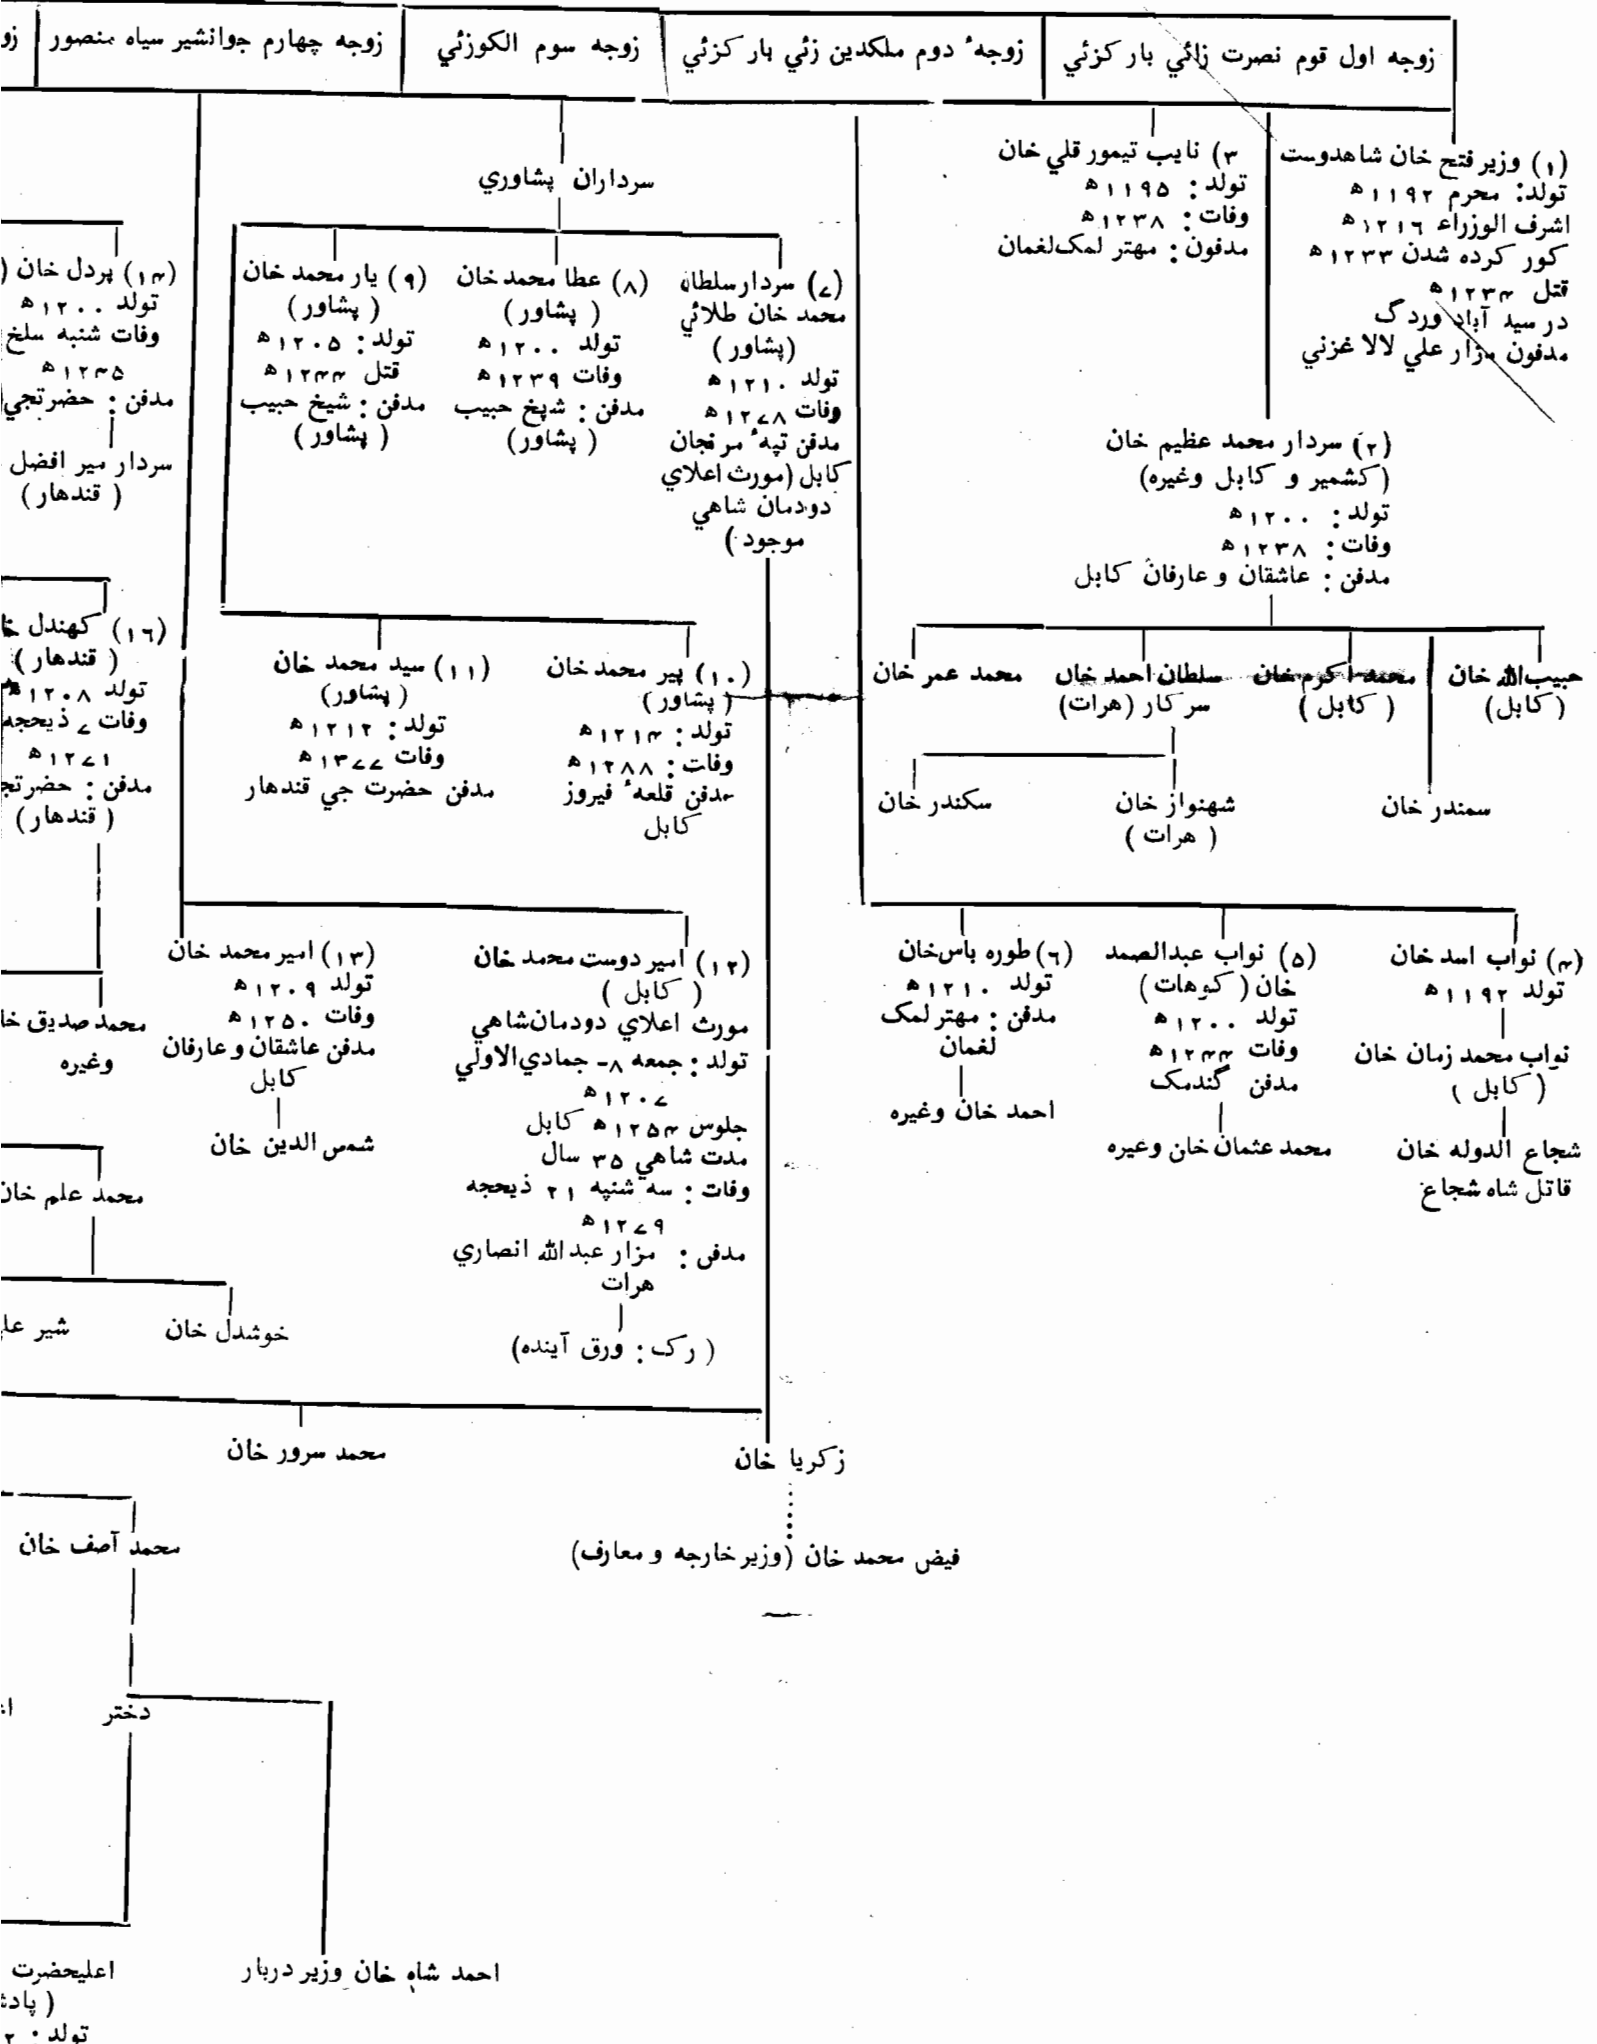 زوجه اول قوم نصرت زائي بارکزئي
زوجهٔ دوم ملکدین زئي بارکزئي
زوجه سوم الکوزئي
زوجه چهارم جوانشیر سیاه منصور
زو
(۱) وزیر فتح خان شاهدوست
تولد: محرم ۱۱۹۲ﻫ
اشرف الوزراء ۱۲۱۶ﻫ
کور کرده شدن ۱۲۳۳ﻫ
قتل ۱۲۳۴ﻫ
در سید آباد وردگ
مدفون مزار علي لالا غزني
۳) نایب تیمور قلي خان
تولد: ۱۱۹۵ﻫ
وفات: ۱۲۳۸ﻫ
مدفون: مهتر لمک لغمان
(۲) سردار محمد عظیم خان
(کشمیر و کابل وغیره)
تولد: ۱۲۰۰ﻫ
وفات: ۱۲۳۸ﻫ
مدفن: عاشقان و عارفان کابل
حبیب‌الله خان
(کابل)
محمد اکرم خان
(کابل)
سلطان احمد خان
سرکار (هرات)
محمد عمر خان
سمندر خان
شهنواز خان
(هرات)
سکندر خان
(۴) نواب اسد خان
تولد ۱۱۹۲ﻫ
نواب محمد زمان خان
(کابل)
شجاع الدوله خان
قاتل شاه شجاع
(۵) نواب عبدالصمد
خان (کوهات)
تولد ۱۲۰۰ﻫ
وفات ۱۲۴۴ﻫ
مدفن گندمک
محمد عثمان خان وغیره
(۶) طوره باس خان
تولد ۱۲۱۰ﻫ
مدفن: مهتر لمک
لغمان
احمد خان وغیره
سرداران پشاوري
(۷) سردار سلطان
محمد خان طلائي
(پشاور)
تولد ۱۲۱۰ﻫ
وفات ۱۲۷۸ﻫ
مدفن تپهٔ مرنجان
کابل (مورث اعلاي
دودمان شاهي
موجود)
(۸) عطا محمد خان
(پشاور)
تولد ۱۲۰۰ﻫ
وفات ۱۲۳۹ﻫ
مدفن: شیخ حبیب
(پشاور)
(۹) یار محمد خان
(پشاور)
تولد: ۱۲۰۵ﻫ
قتل ۱۲۴۴ﻫ
مدفن: شیخ حبیب
(پشاور)
(۱۰) پیر محمد خان
(پشاور)
تولد: ۱۲۱۴ﻫ
وفات: ۱۲۸۸ﻫ
مدفن قلعهٔ فیروز
کابل
(۱۱) سید محمد خان
(پشاور)
تولد: ۱۲۱۲ﻫ
وفات ۱۳۷۷ﻫ
مدفن حضرت جي قندهار
(۱۲) امیر دوست محمد خان
(کابل)
مورث اعلاي دودمان شاهي
تولد: جمعه ۸- جمادي‌الاولي
۱۲۰۷ﻫ
جلوس ۱۲۵۴ﻫ کابل
مدت شاهي ۳۵ سال
وفات: سه شنبه ۲۱ ذیحجه
۱۲۷۹ﻫ
مدفن: مزار عبدالله انصاري
هرات
(رک: ورق آینده)
(۱۳) امیر محمد خان
تولد ۱۲۰۹ﻫ
وفات ۱۲۵۰ﻫ
مدفن عاشقان و عارفان
کابل
شمس الدین خان
(۱۴) پردل خان (
تولد ۱۲۰۰ﻫ
وفات شنبه سلخ
۱۲۴۵ﻫ
مدفن: حضرتجي
سردار میر افضل
(قندهار)
(۱۶) کهندل خا
(قندهار)
تولد ۱۲۰۸ﻫ
وفات ۷ ذیحجه
۱۲۷۱ﻫ
مدفن: حضرتج
(قندهار)
محمد صدیق خا
وغیره
محمد علم خان
خوشدل خان
شیر عل
زکریا خان
محمد سرور خان
فیض محمد خان (وزیر خارجه و معارف)
محمد آصف خان
دختر
احمد شاه خان وزیر دربار
اعلیحضرت
(پادش
تولد: ۲